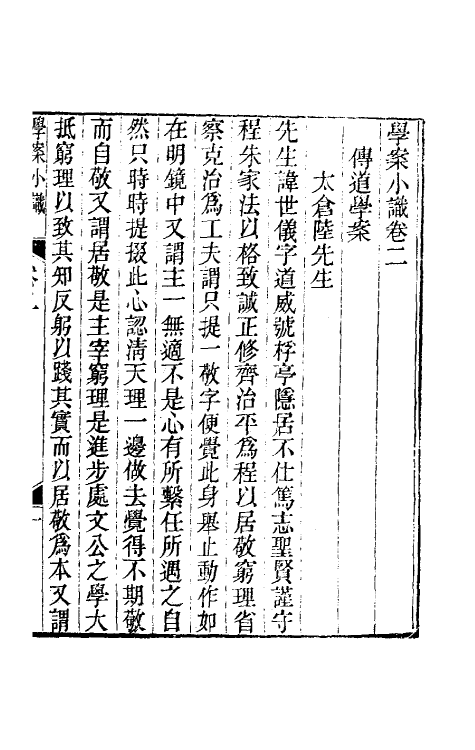 學案小識卷二
傳道學案
太倉陸先生
先生諱世儀字道威號桴亭隱居不仕篤志聖賢謹守
程朱家法以格致誠正修齊治平爲程以居敬窮理省
察克治爲工夫謂只提一敬字便覺此身舉止動作如
在明鏡中又謂主一無適不是心有所繫任所遇之自
然只時時提掇此心認清天理一邊做去覺得不期敬
而自敬又謂居敬是主宰窮理是進步處文公之學大
抵窮理以致其知反躬以踐其實而以居敬爲本又謂
學案小識
卷二
一